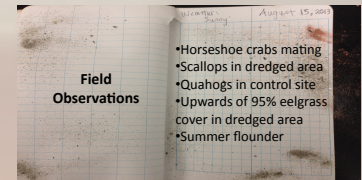 Weather:
Sunny
August 15, 2013
Field
Observations
•Horseshoe crabs mating
•Scallops in dredged area
•Quahogs in control site
•Upwards of 95% eelgrass
cover in dredged area
•Summer flounder